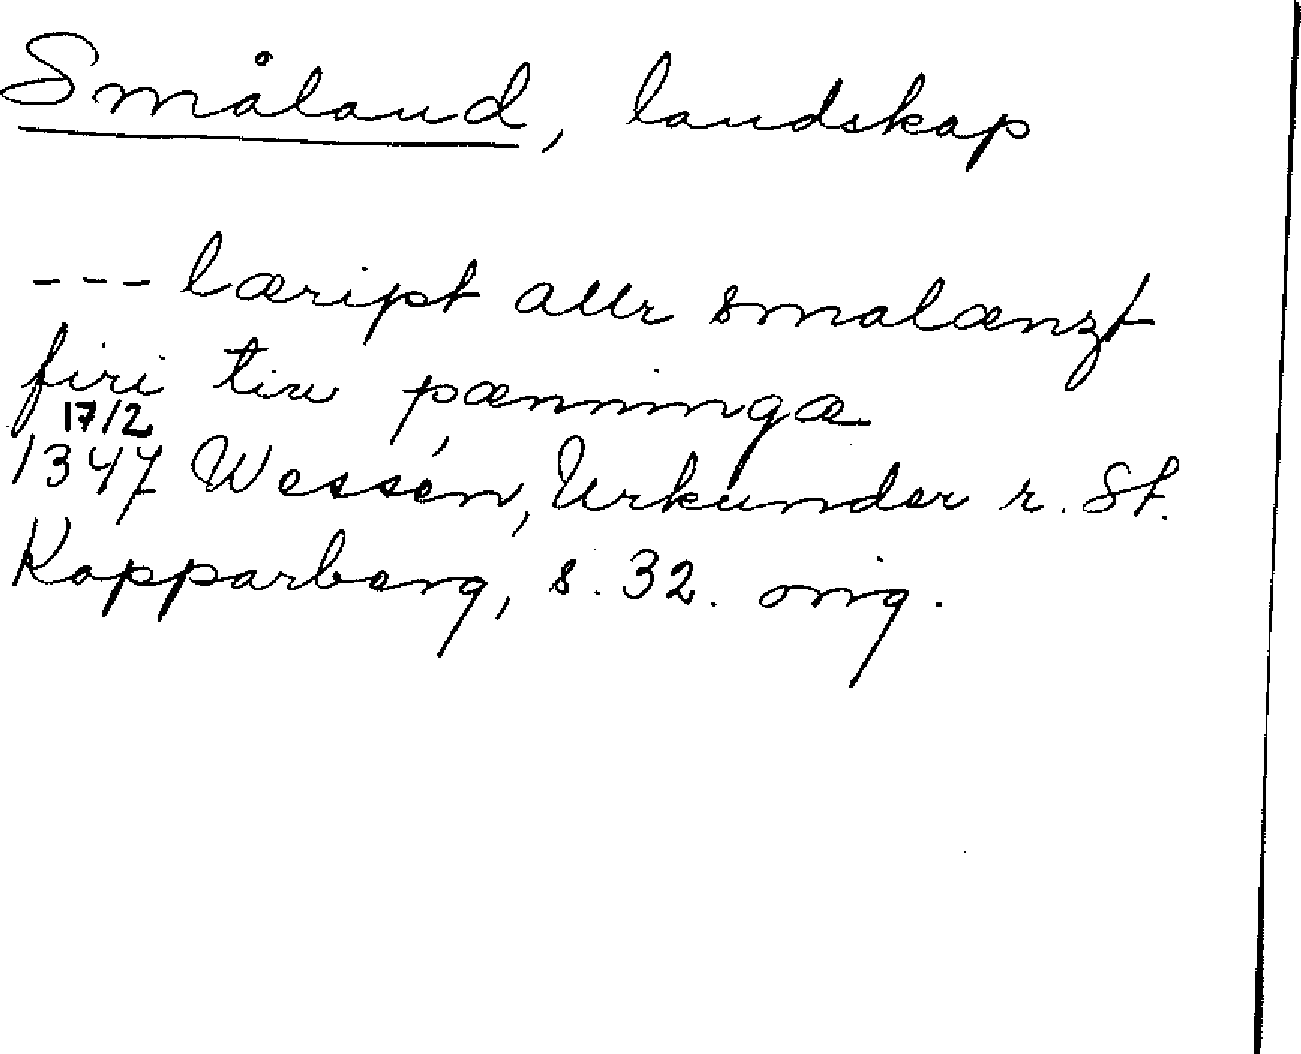 Småland, landskap
--- læript allr smalænzt
firi tiu pænningæ
17/2
1347 Wessén, Urkunder r. St.
Kopparberg, s. 32. orig.